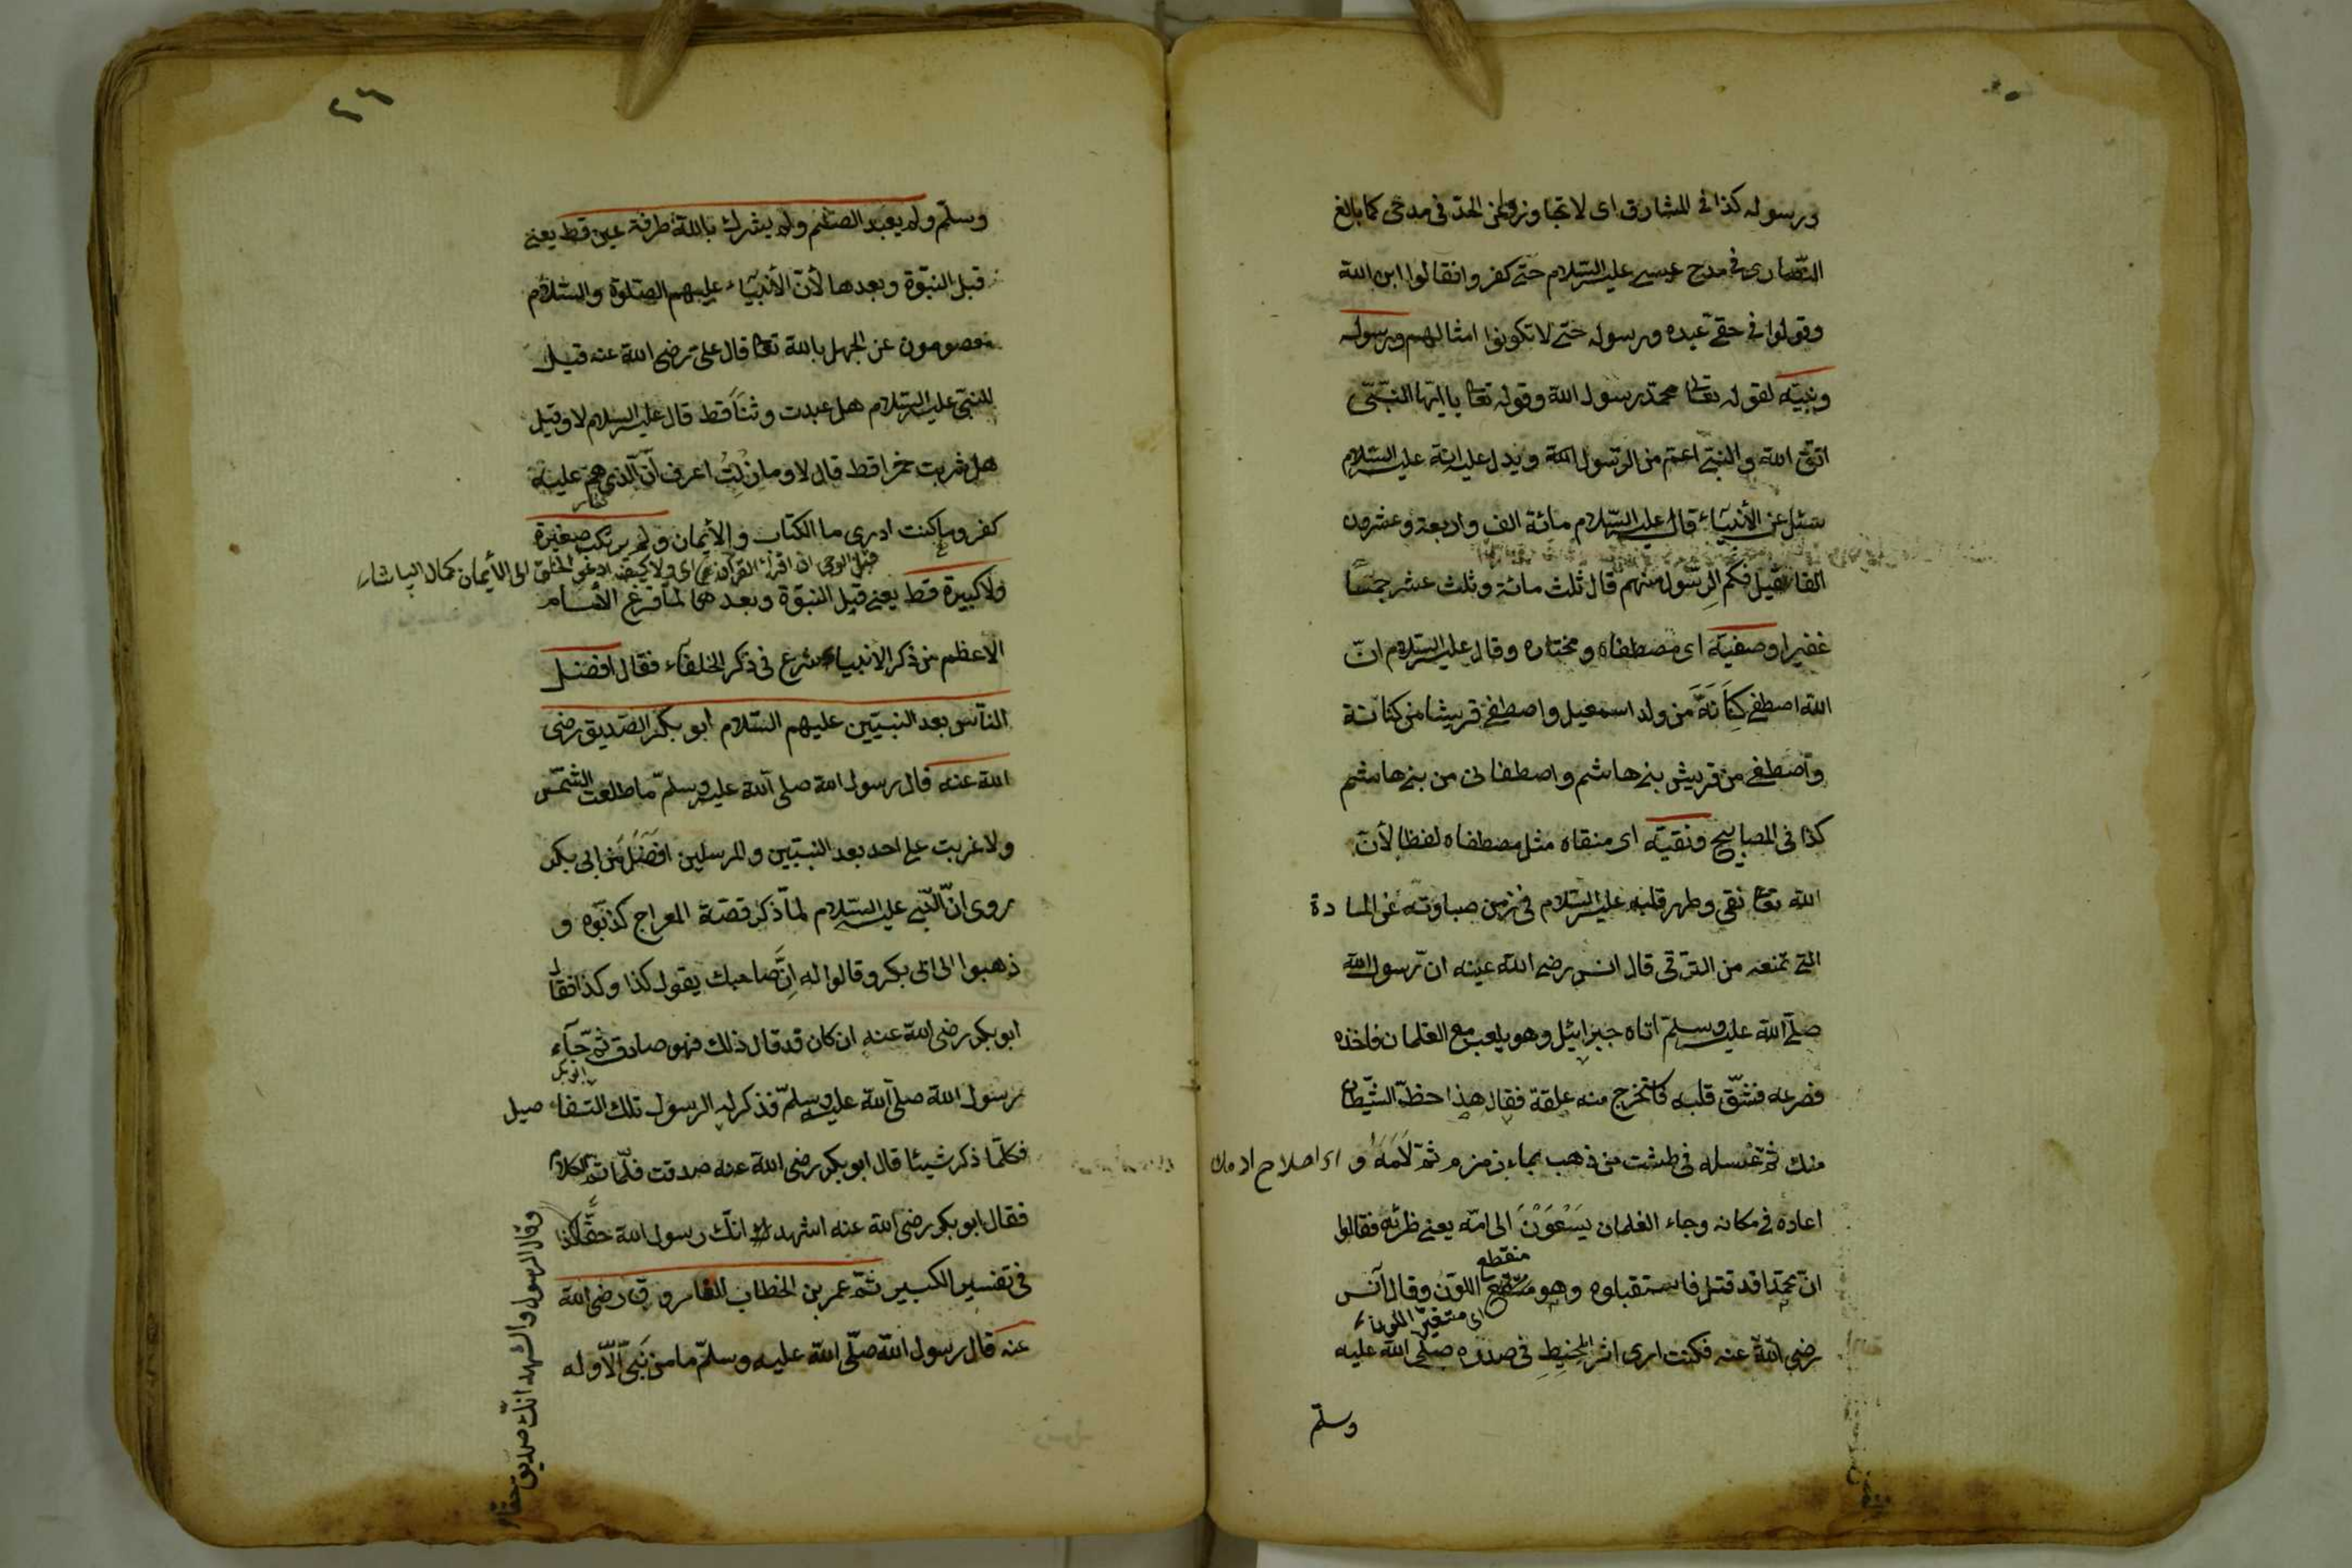 ورسوله كذا فى المشارق اى لا تجاوزوا عن الحدّ فى مدحى كما بالغ
النّصارى فى مدح عيسى عليه السّلام حتى كفروا فقالوا ابن الله
وقولوا فى حقى عبده ورسوله حتى لا تكونوا امثالهم ورسوله
ونبيّه لقوله تعالى محمّد رسول الله وقوله تعا يا ايّها النّبىّ
اتق الله والنبى اعمّ من الرّسول ويدل عليه انه عليه السّلام
سئل عن الأنبياء قال عليه السّلام مائة الف واربعة وعشرون
الفا فقيل فكم الرّسول منهم قال ثلث مائة وثلث عشر جمّا
غفيرا وصفيّه اى مصطفاه ومختاره وقال عليه السّلام انّ
الله اصطفى كِنَانَةَ من ولد اسمعيل واصطفى قريشا من كنانة
واصطفى من قريش بنى هاشم واصطفانى من بنى هاشم
كذا فى المصابيح ونقيّه اى منقاه مثل مصطفاه لفظا لأنّ
الله تعا نقى وطهر قلبه عليه السّلام فى زمن صباوته عن المادة
التى تمنعه من الترقى قال انس رضى الله عنه ان رسول الله
صلّى الله عليه وسلّم اتاه جبرائيل وهو يلعب مع الغلمان فاخذه
فصرعه فشقّ قلبه فاستخرج منه علقة فقال هذا حظّ الشّيطان
منك ثمّ غسله فى طشت من ذهب بماء زمزم ثمّ لَأَمَهُ و
اى اصلاح
اعاده فى مكانه وجاء الغلمان يَسْعَوْنَ الى امّه يعنى ظئره فقالوا
منقطع
انّ محمّدا قد قتل فاستقبلوه وهو منتقع اللّون وقال آنس
اى متغيّر اللون
رضى الله عنه فكنت ارى اثر المِخْيَطِ فى صدره صلّى الله عليه
وسلّم
٢٦
وسلّم ولم يعبد الصنم ولم يشرك بالله طرفة عين قط يعنى
قبل النبوّة وبعدها لأنّ الأنبيآء عليهم الصّلوة والسّلام
معصومون عن الجهل بالله تعا قال علىّ رضى الله عنه قيل
للنبىّ عليه السّلام هل عبدت وثناً قط قال عليه السلام لا وقيل
هل شربت خمرا قط قال لا وما زِلْتُ اعرف انّ الّذى هم عليه
كفر وما كنت ادرى ما الكتاب والأيمان ولم يرتكب صغيرة
قبل الوحى ان اقرأ القرآن اى ولا كيف ادعو الخلق الى الأيمان كمال
ولا كبيرة قط يعنى قبل النبوّة وبعدها لمّا فرغ الأمام
الاعظم من ذكر الانبياء شرع فى ذكر الخلفآء فقال افضل
النّاس بعد النبيّين عليهم السّلام ابو بكر الصّديق رضى
الله عنه قال رسول الله صلى الله عليه وسلّم ما طلعت الشّمس
ولا غربت على احد بعد النبيّين والمرسلين افضل من ابى بكر
روى انّ النّبى عليه السّلام لمّا ذكر قصّة المعراج كذّبوه و
ذهبوا الى ابى بكر وقالوا له اِنَّ صاحبك يقول كذا وكذا فقال
ابو بكر رضى الله عنه ان كان قد قال ذلك فهو صادق ثمّ جآء
ابو بكر
رسول الله صلّى الله عليه وسلّم فذكر له الرسول تلك التفاصيل
فكلّما ذكر شيئا قال ابو بكر رضى الله عنه صدقت فلّما تمّ الكلام
فقال ابو بكر رضى الله عنه اشهد انّك رسول الله حقّا كذا
وقال الرسول واشهد انّك صديق حقّا
فى تفسير الكبير ثمّ عمر بن الخطاب الفاروق رضى الله
عنه قال رسول الله صلّى الله عليه وسلّم ما من نبىّ الّا وله